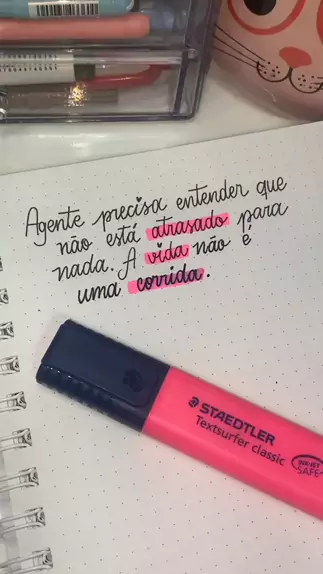 Agente precisa entender que
não está atrasado para
nada. A vida não é
uma corrida.
STAEDTLER
Textsurfer classic
INK JET
SAFE